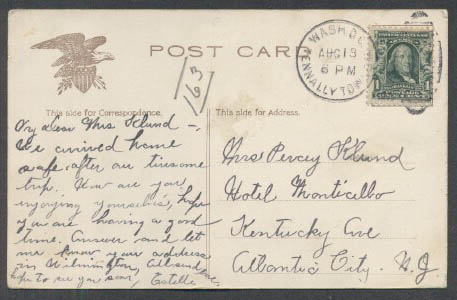 POST CARD
163
WASH. D.C.
AUG 13
6 PM
TENNALLYTOWN
1
This side for Correspondence.
This side for Address.
My dear Mrs Klund —,
We arrived home
safe after our tiresome
trip. How are you
enjoying yourselves, hope
you are having a good
time. Answer and let
me know your address
in Wilmington, All send love
hope to see you soon, Estelle
Mrs Percey Klund
Hotel Monticello
Kentucky Ave
Atlantic City. N.J.